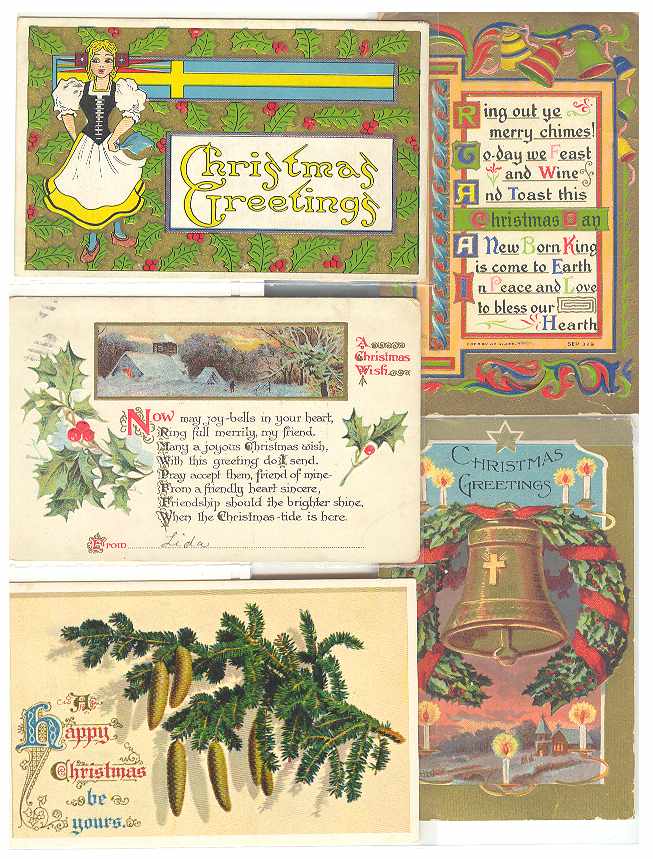 Christmas
Greetings
Ring out ye
merry chimes!
To-day we Feast
and Wine
And Toast this
Christmas Day
A New Born King
is come to Earth
In Peace and Love
to bless our
Hearth
SER 376
A
Christmas
Wish
Now may joy-bells in your heart,
Ring full merrily, my friend.
Many a joyous Christmas wish,
With this greeting do I send.
Pray accept them, friend of mine-
From a friendly heart sincere,
Friendship should the brighter shine,
When the Christmas-tide is here.
Lida
CHRISTMAS
GREETINGS
A
Happy
Christmas
be
yours.